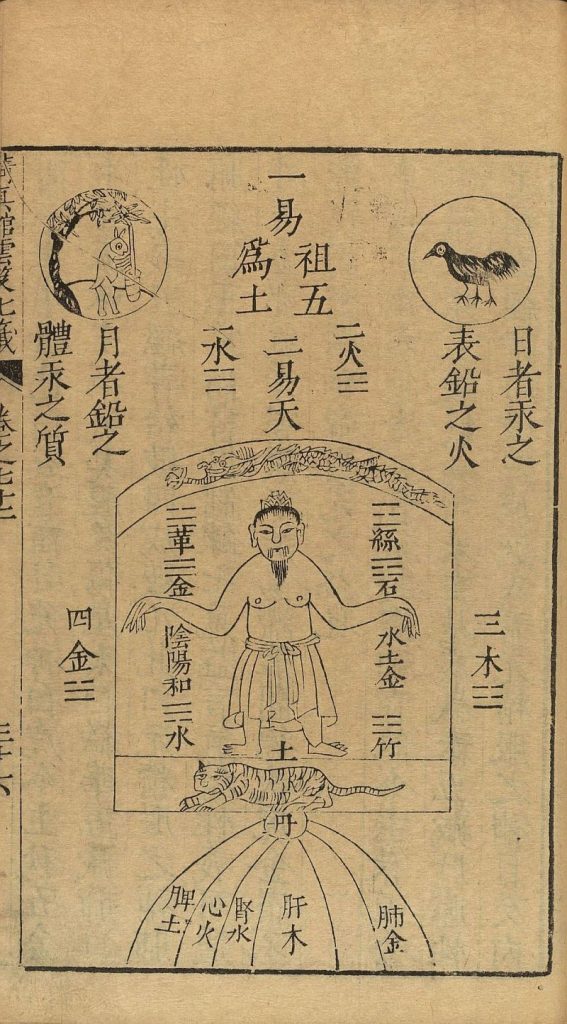 日者汞之
表鉛之火
一易
祖五
為土
二易天
二火
一水
月者鉛之
體汞之質
三木
四金
絲
石
水土金
竹
革
金
陰陽和
水
土
丹
肺金
肝木
腎水
心火
脾土
真館雲笈七籤
卷之七十二